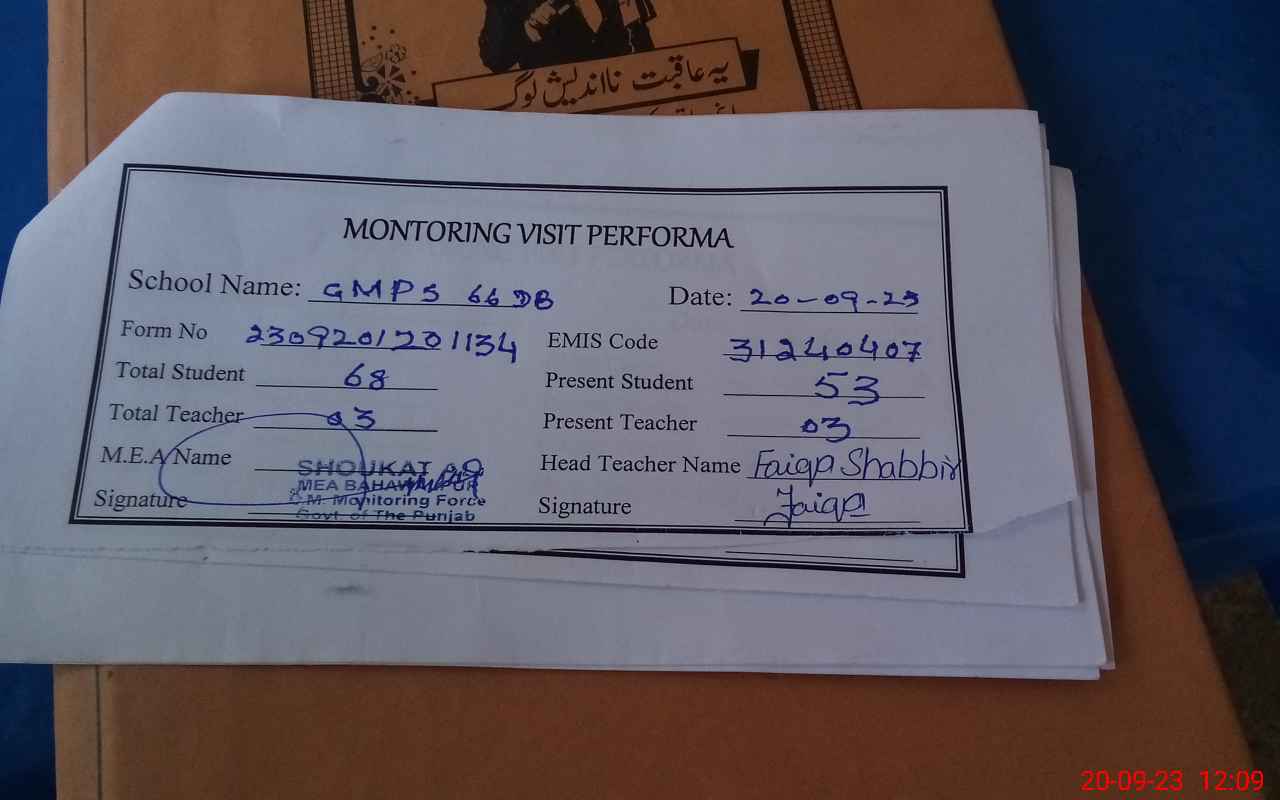 یہ عاقبت نااندیش لوگ
MONTORING VISIT PERFORMA
School Name: GMPS 66 DB Date: 20-09-23
Form No 2309201201134 EMIS Code 31240407
Total Student 68 Present Student 53
Total Teacher 03 Present Teacher 03
M.E.A Name SHOUKAT Head Teacher Name Faiqa Shabbir
MEA BAHAWALPUR
C.M. Monitoring Force
Signature Govt. of The Punjab Signature Faiqa
20-09-23 12:09